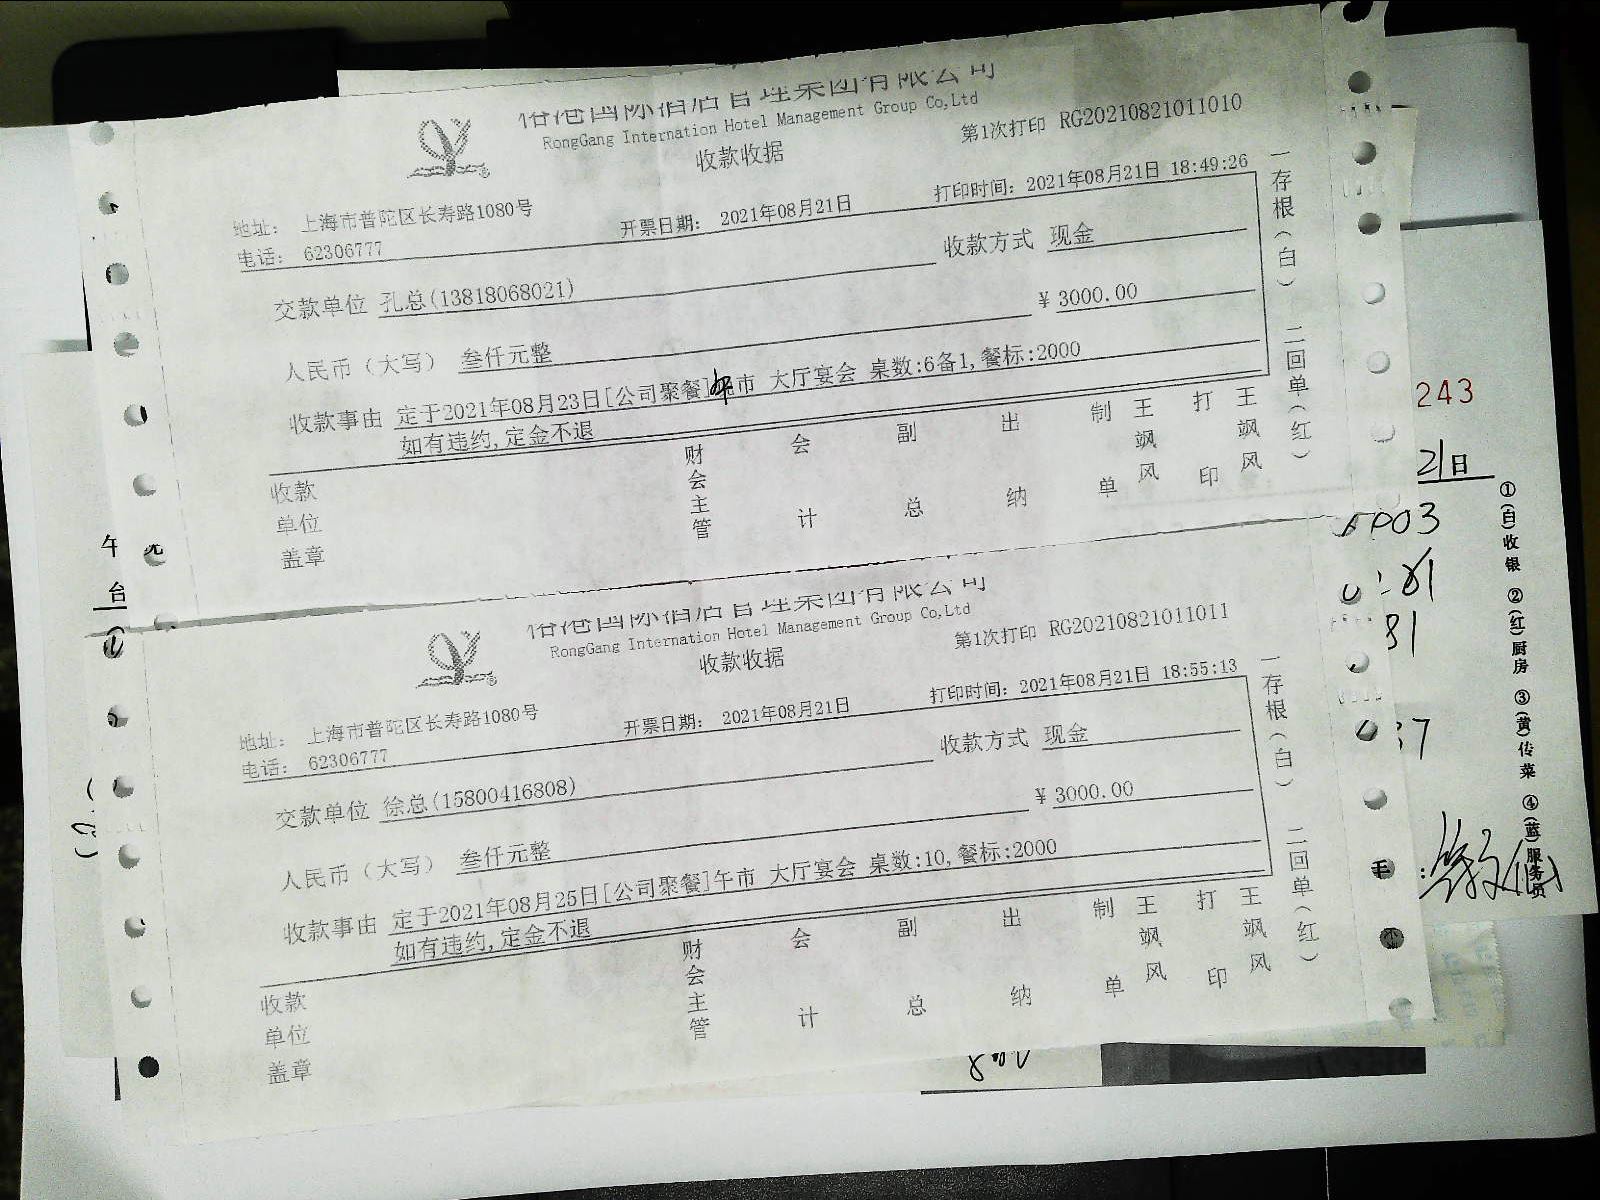 裕港国际酒店管理集团有限公司
RongGang Internation Hotel Management Group Co,Ltd
收款收据
第1次打印 RG20210821011010
地址: 上海市普陀区长寿路1080号
电话: 62306777
开票日期: 2021年08月21日
打印时间: 2021年08月21日 18:49:26
交款单位 孔总(13818068021)
收款方式 现金
人民币（大写） 叁仟元整
¥ 3000.00
收款事由 定于2021年08月23日[公司聚餐]午市 大厅宴会 桌数:6备1,餐标:2000
如有违约,定金不退
收款单位盖章
财会主管
会计
副总
出纳
制单
王飒风
打印
王飒风
一存根(白) 二回单(红)
裕港国际酒店管理集团有限公司
RongGang Internation Hotel Management Group Co,Ltd
收款收据
第1次打印 RG20210821011011
地址: 上海市普陀区长寿路1080号
电话: 62306777
开票日期: 2021年08月21日
打印时间: 2021年08月21日 18:55:13
交款单位 徐总(15800416808)
收款方式 现金
人民币（大写） 叁仟元整
¥ 3000.00
收款事由 定于2021年08月25日[公司聚餐]午市 大厅宴会 桌数:10,餐标:2000
如有违约,定金不退
收款单位盖章
财会主管
会计
副总
出纳
制单
王飒风
打印
王飒风
一存根(白) 二回单(红)
午
台
243
21日
①(白)收银 ②(红)厨房 ③(黄)传菜 ④(蓝)服务员